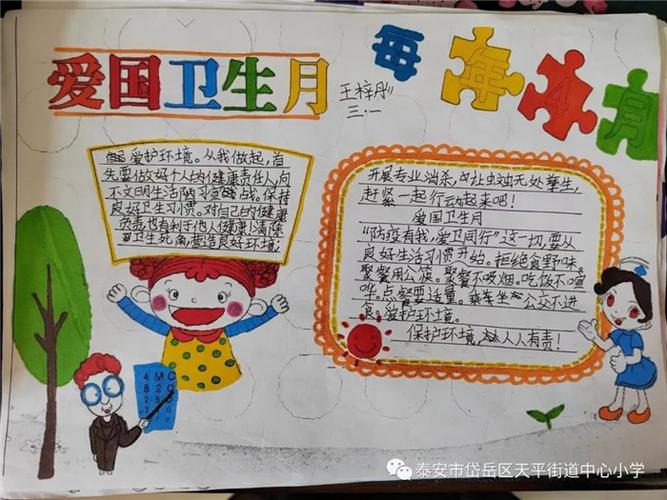 爱国卫生月
每年4月
王梓彤
三.一
爱护环境。从我做起,首
先要做好个人的健康责任人,向
不文明生活陋习宣战。保持
良好卫生习惯。对自己的健康
负责也有利于他人健康。清除
卫生死角,营造良好环境
开展专业消杀,让虫蚀无处孳生,
赶紧一起行动起来吧!
爱国卫生月
“防疫有我,爱卫同行”这一切,要从
良好生活习惯开始。拒绝食野味。
聚餐用公筷。聚餐不吸烟。吃饭不喧
哗。点餐要适量。乘车坐公交不进
食。爱护环境。
保护环境,人人有责!
泰安市岱岳区天平街道中心小学